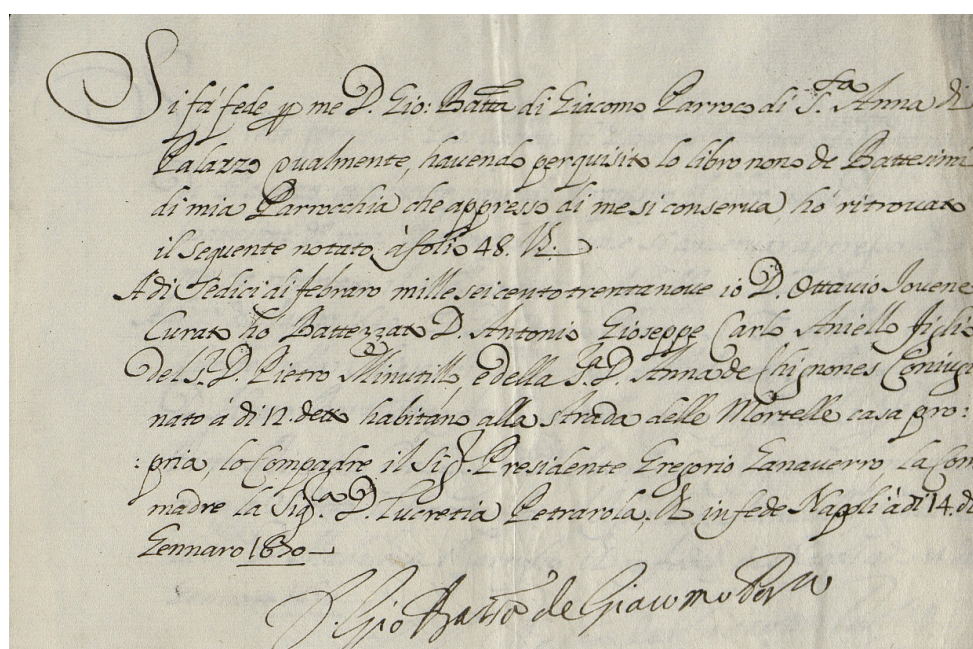 Si fà fede p me D. Gio: Batta di Giacomo Parroco di S.ta Anna di
Palazzo qualmente, havendo perquisito lo libro nono de Battesimi
di mia Parrocchia che appresso di me si conserva hó ritrovato
il sequente notato à folio 48. Vz.
A di Sedici di febraro mille seicento trentanove io D. Ottavio Jovene
Curato ho Battezzato D. Antonio Gioseppe Carlo Aniello figlio
del S.r D. Pietro Minutillo, e della S.ra D. Anna de Chignones Coniugi
nato á di 12. detto habitano alla strada delle Mortelle casa pro:
:pria, lo Compadre il Sig.r Presidente Gregorio Zanaverro, la Com
madre la Sig.ra D. Lucretia Petrarola, & in fede Napoli à di 14. di
Gennaro
D. Gio Batta de Giacomo